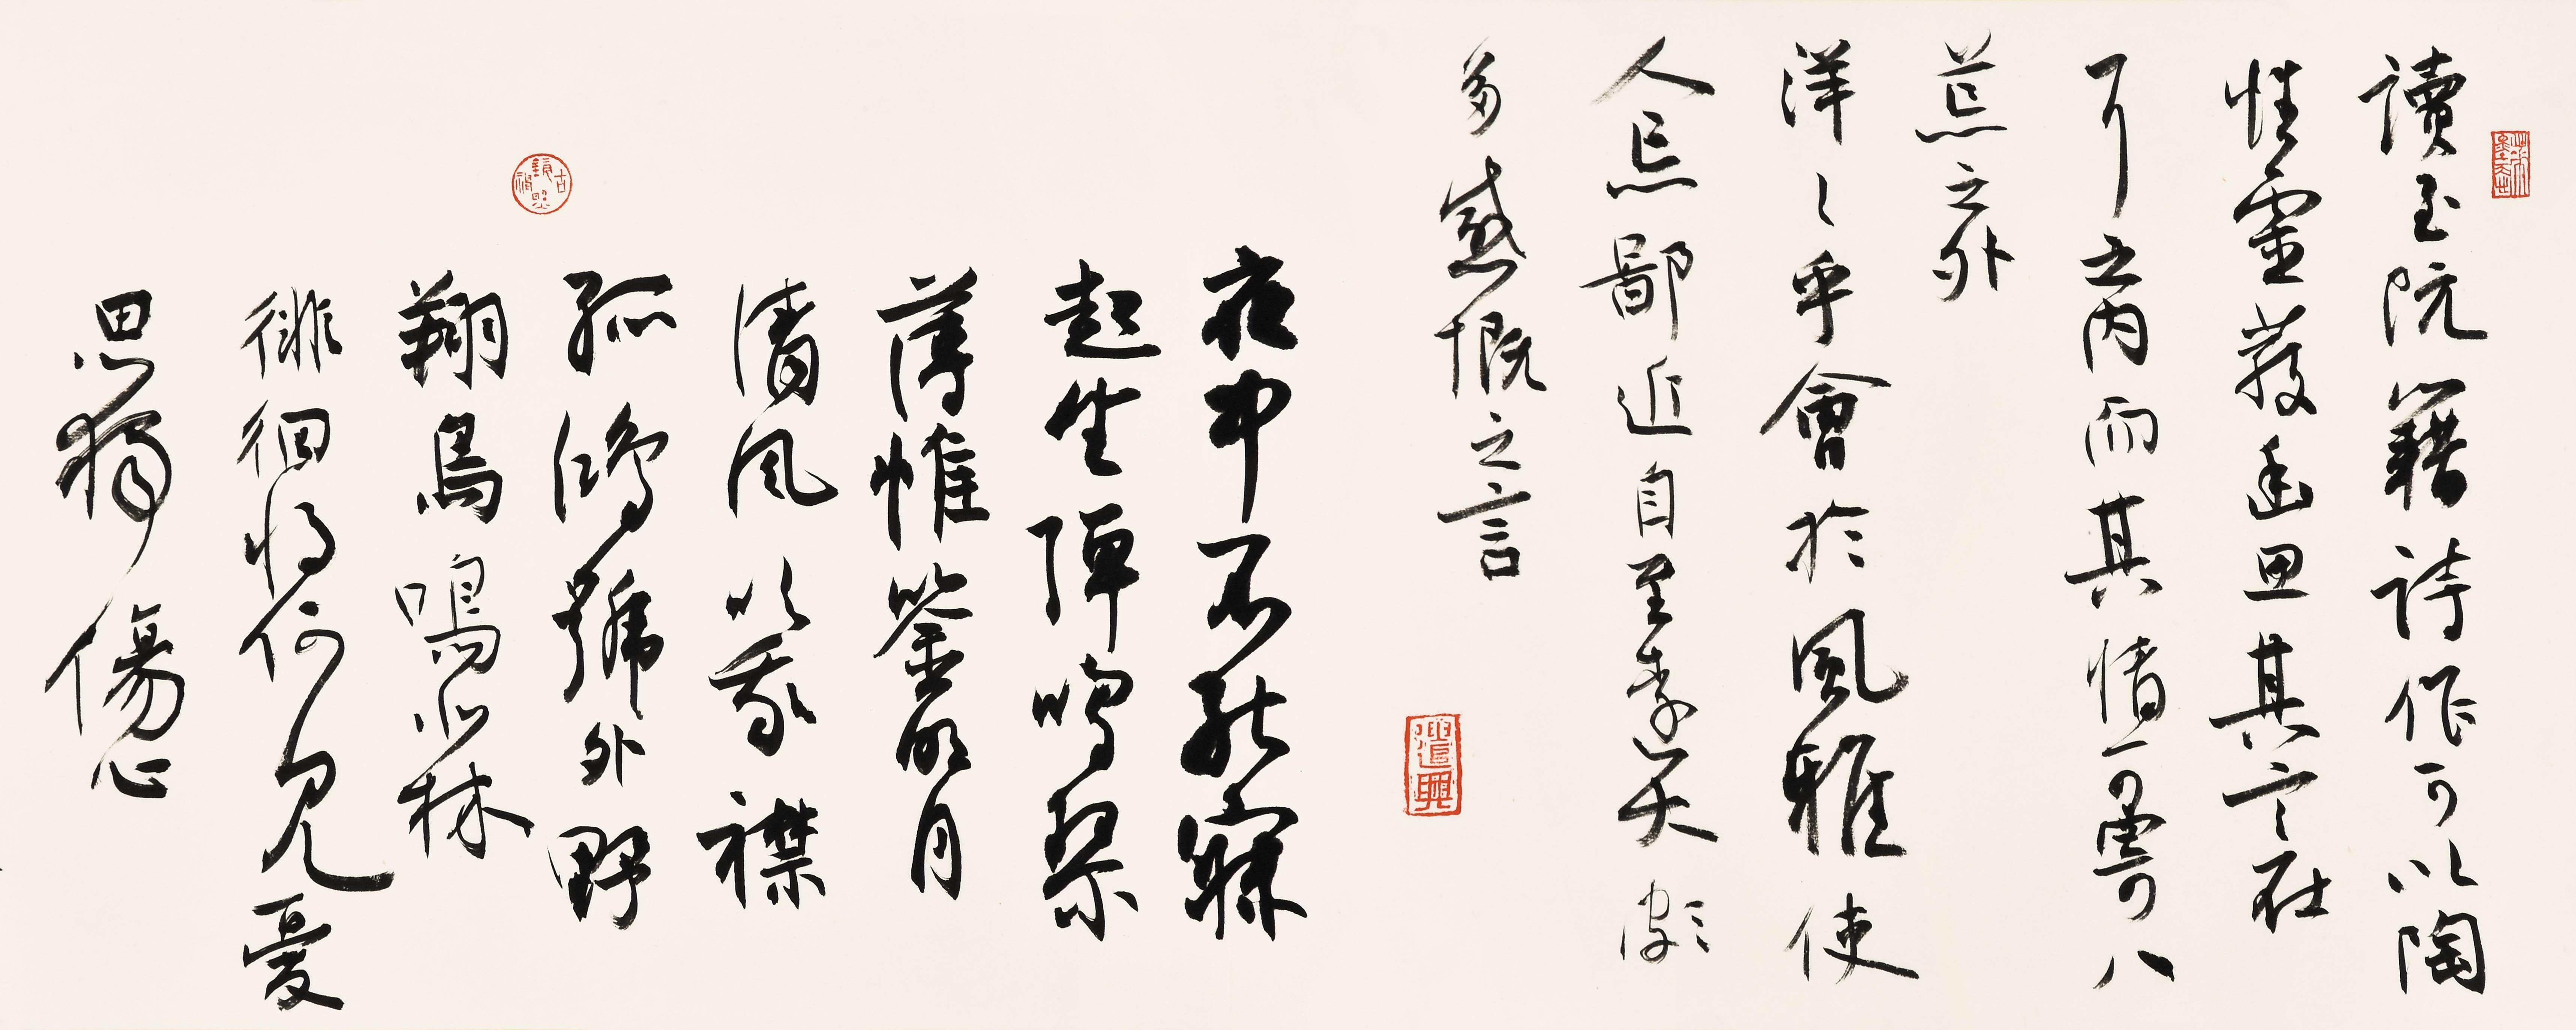 讀至阮籍詩作可以陶
性靈發幽思其言在
耳之内而其情可寄八
荒之外
洋々乎會於風雅使
人忘鄙近自至遠大頗
多感慨之言
遣興
夜中不能寐
起坐彈鳴琴
薄帷鑒明月
清風吹我襟
孤鴻號外野
翔鳥鳴北林
徘徊將何見憂
思獨傷心